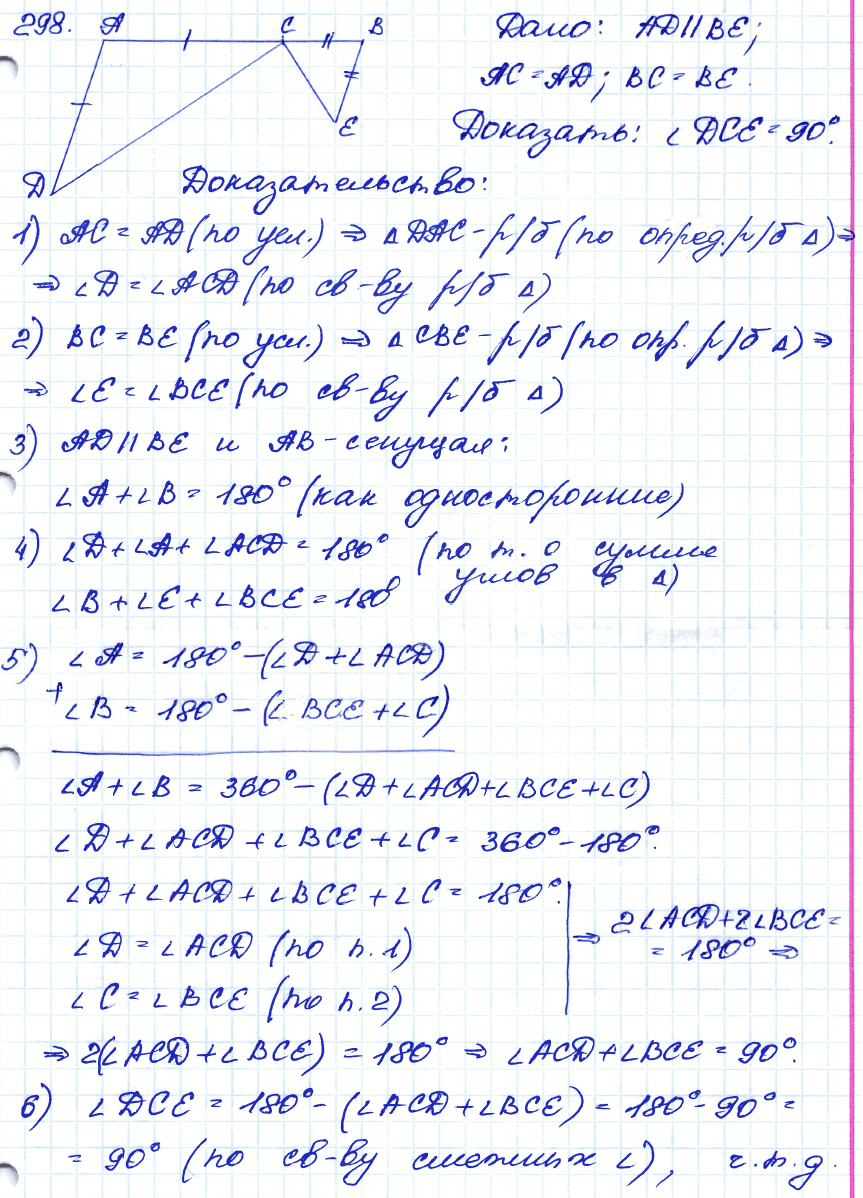 298. A C B Дано: AD || BE;
AC = AD; BC = BE.
E
Доказать: ∠DCE = 90°.
D
Доказательство:
1) AC = AD (по усл.) ⇒ △DAC - р/б (по опред. р/б △) ⇒
⇒ ∠D = ∠ACD (по св-ву р/б △)
2) BC = BE (по усл.) ⇒ △CBE - р/б (по опр. р/б △) ⇒
⇒ ∠E = ∠BCE (по св-ву р/б △)
3) AD || BE и AB - секущая:
∠A + ∠B = 180° (как односторонние)
4) ∠D + ∠A + ∠ACD = 180° (по т. о сумме
углов в △)
∠B + ∠E + ∠BCE = 180°
5) ∠A = 180° - (∠D + ∠ACD)
+ ∠B = 180° - (∠BCE + ∠C)
∠A + ∠B = 360° - (∠D + ∠ACD + ∠BCE + ∠C)
∠D + ∠ACD + ∠BCE + ∠C = 360° - 180°.
∠D + ∠ACD + ∠BCE + ∠C = 180°.
∠D = ∠ACD (по п.1)
∠C = ∠BCE (по п.2)
⇒ 2∠ACD + 2∠BCE =
= 180° ⇒
⇒ 2(∠ACD + ∠BCE) = 180° ⇒ ∠ACD + ∠BCE = 90°.
6) ∠DCE = 180° - (∠ACD + ∠BCE) = 180° - 90° =
= 90° (по св-ву смежных ∠), ч.т.д.